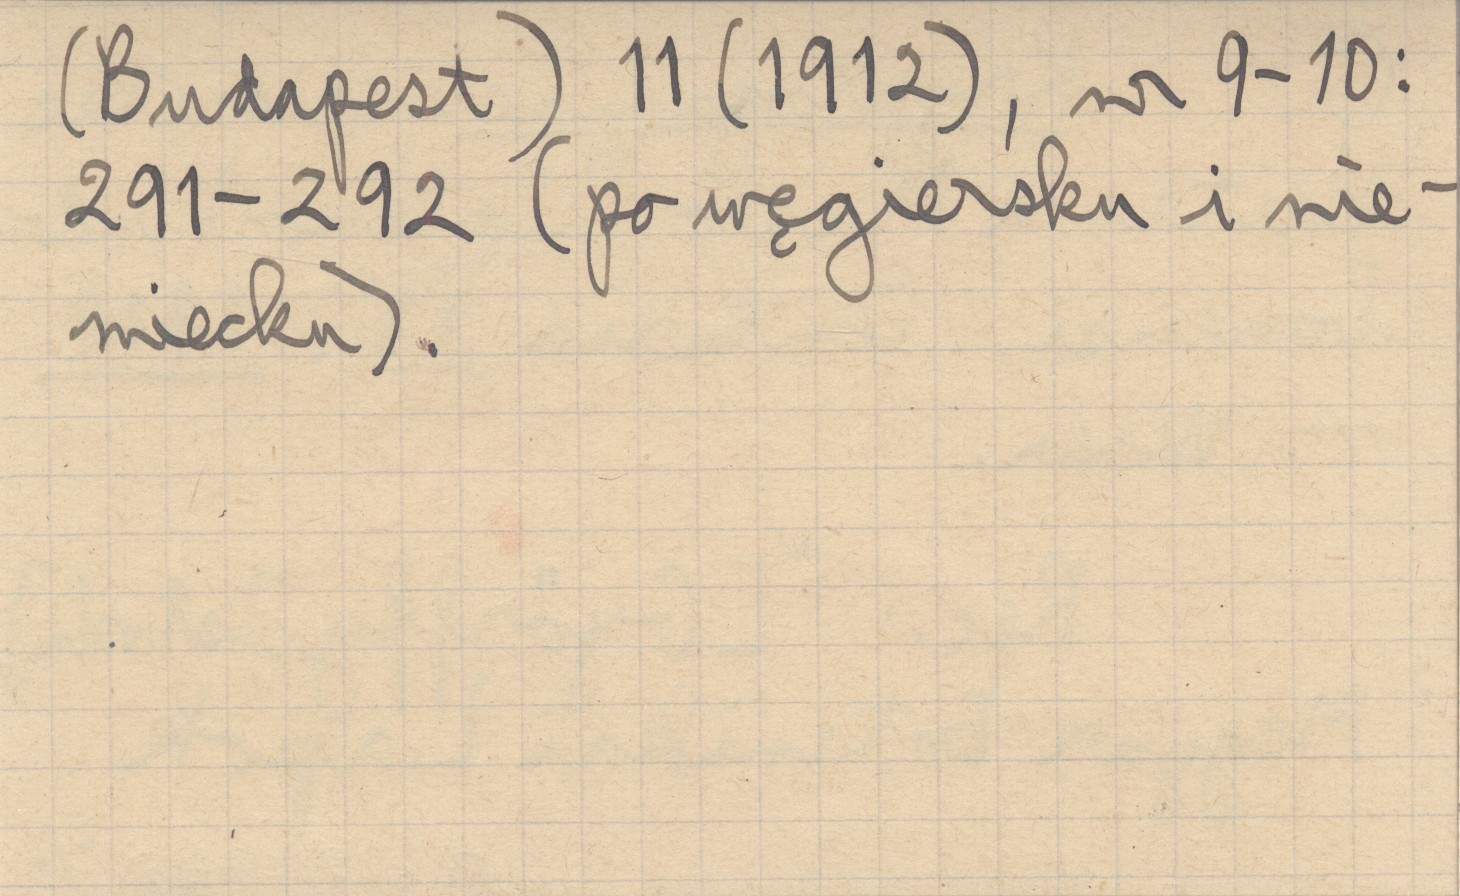 (Budapest) 11 (1912), nr 9-10:
291-292 (po węgiersku i nie-
miecku).